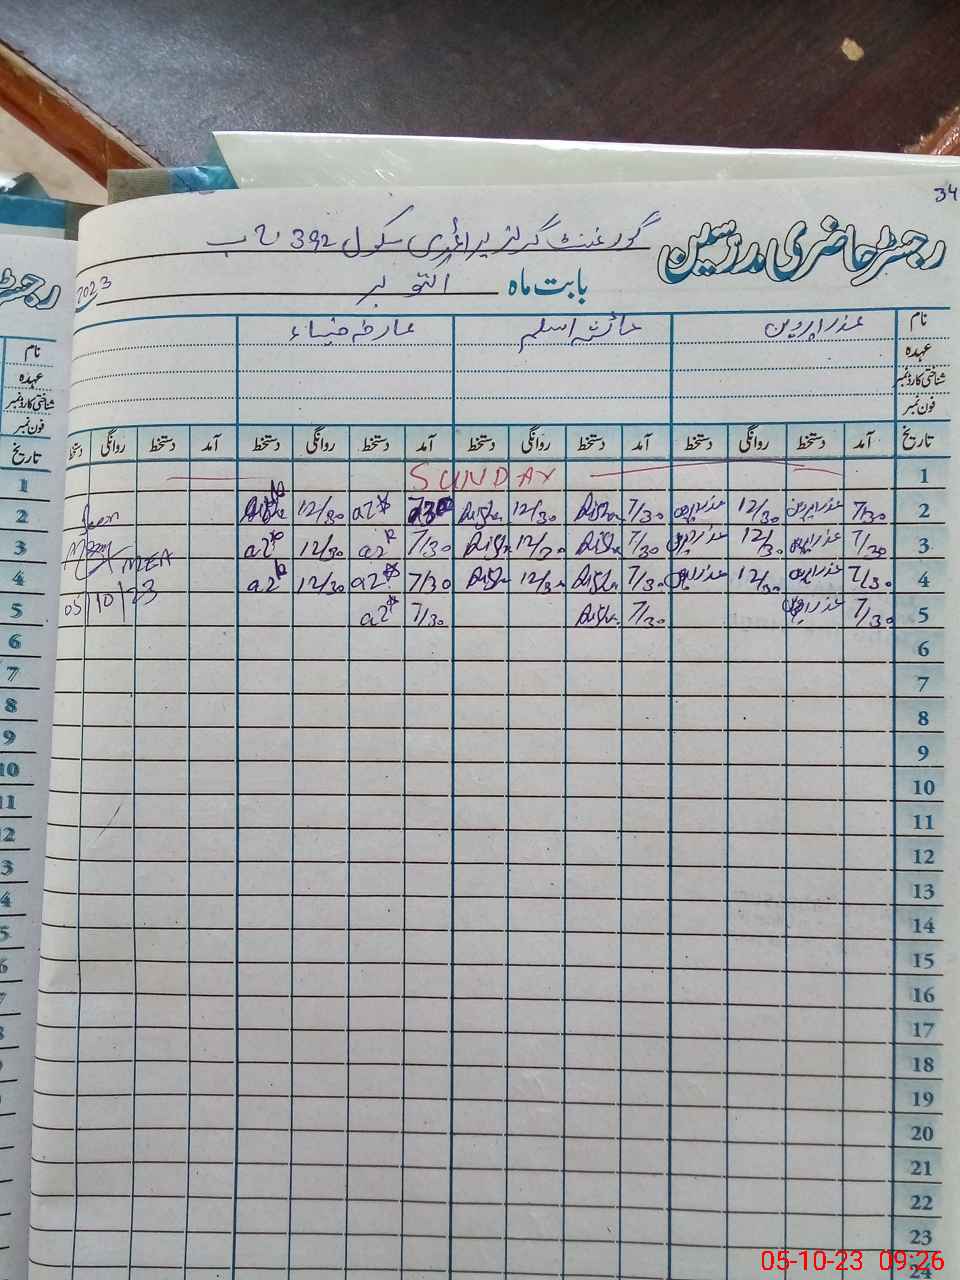 34
رجسٹر حاضری مدرسین گورنمنٹ گرلز پرائمری سکول 392 ج ب
بابت ماہ اکتوبر 2023
نام عذرا پروین عائشہ اسلم عارفہ ضیاء
عہدہ
شناختی کارڈ نمبر
فون نمبر
تاریخ آمد دستخط روانگی دستخط آمد دستخط روانگی دستخط آمد دستخط روانگی دستخط آمد دستخط روانگی دستخط
1 SUNDAY
2 7/30 عذرا پروین 12/30 عذرا پروین 7/30 12/30 7 30 12/30
3 7/30 عذرا پروین 12/30 عذرا پروین 7/30 12/30 7/30 12/30
4 7/30 عذرا پروین 12/30 عذرا پروین 7/30 12/30 7/30 12/30 MEA
5 7/30 عذرا پروین 7/30 7/30 05/10/23
6
7
8
9
10
11
12
13
14
15
16
17
18
19
20
21
22
23
24
نام
عہدہ
شناختی کارڈ نمبر
فون نمبر
تاریخ
1
2
3
4
5
6
7
8
9
10
11
05-10-23 09:26